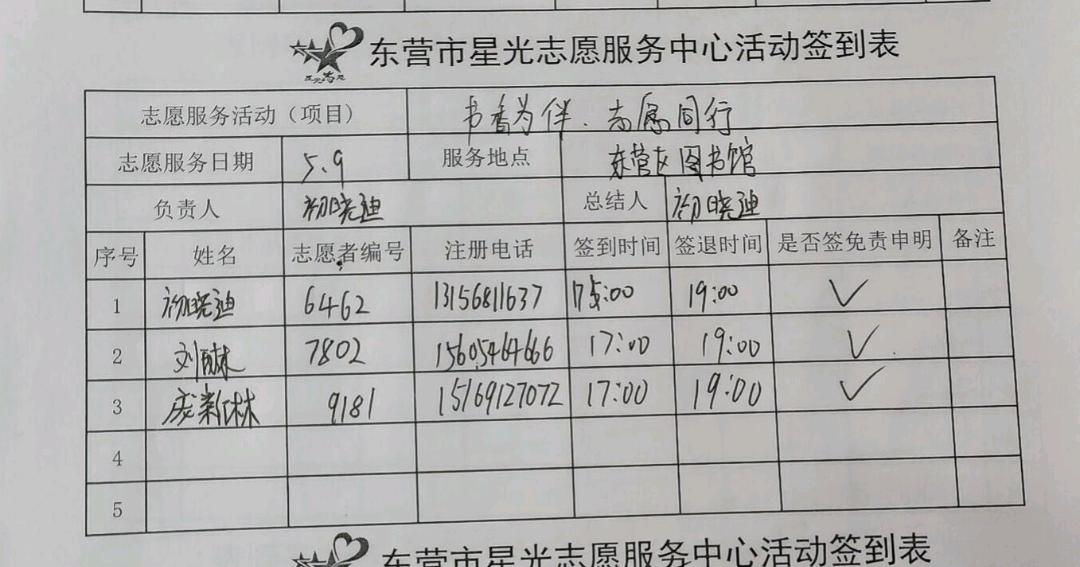 东营市星光志愿服务中心活动签到表
志愿服务活动（项目） 书香为伴．志愿同行
志愿服务日期 5.9 服务地点 东营区图书馆
负责人 初晓迪 总结人 初晓迪
序号 姓名 志愿者编号 注册电话 签到时间 签退时间 是否签免责申明 备注
1 初晓迪 6462 13156811637 :00 19:00 ✓
2 刘 7802 15605464666 17:00 19:00 ✓
3 9181 15169127072 17:00 19:00 ✓
4
5
东营市星光志愿服务中心活动签到表